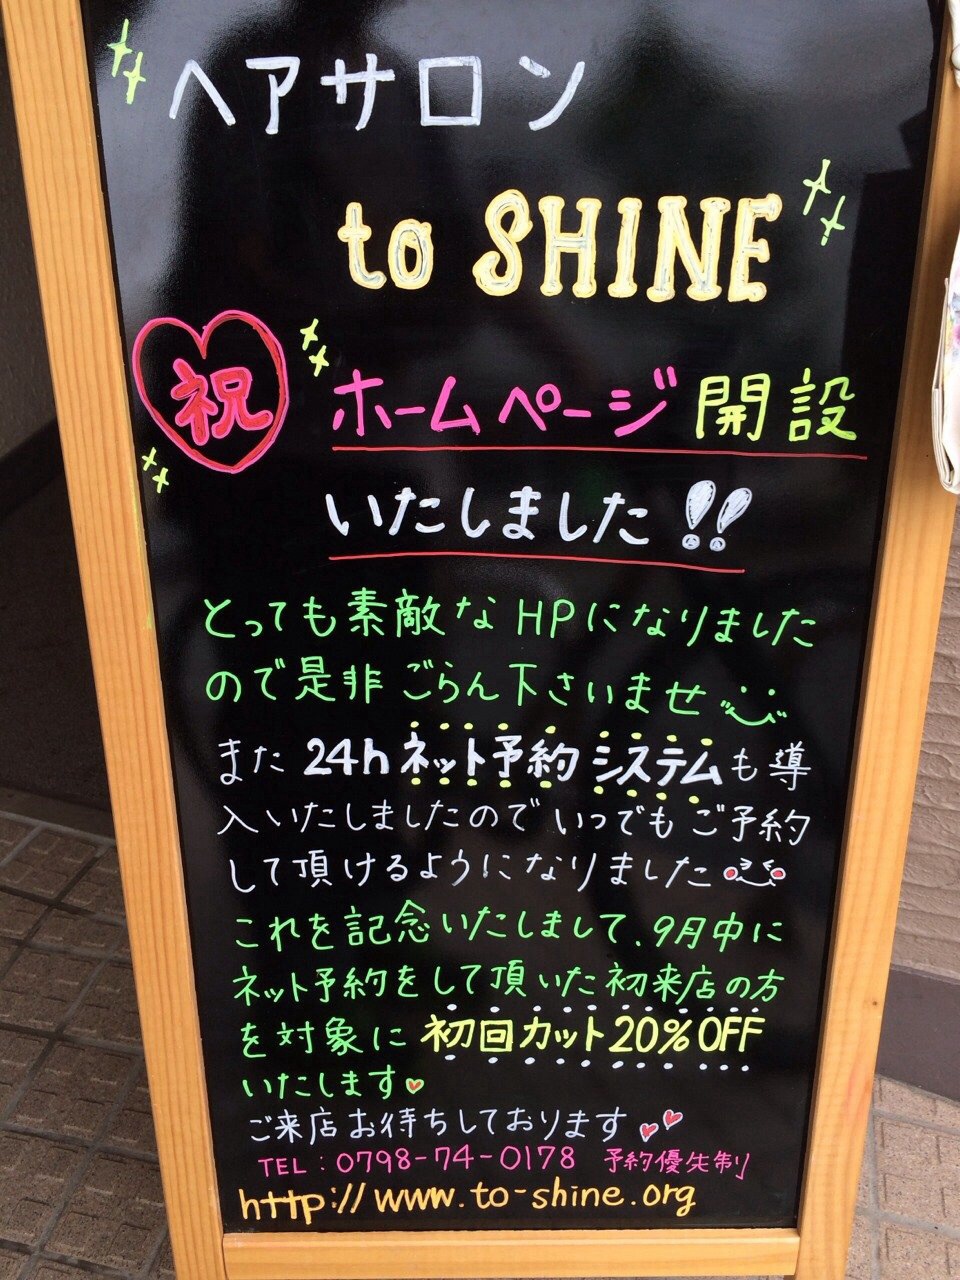 ヘアサロン
to SHINE
祝
ホームページ開設
いたしました!!
とっても素敵なHPになりました
ので是非ごらん下さいませ
また24hネット予約システムも導
入いたしましたのでいつでもご予約
して頂けるようになりました
これを記念いたしまして、9月中に
ネット予約をして頂いた初来店の方
を対象に初回カット20%OFF
いたします♥
ご来店お待ちしております♥♥
TEL:0798-74-0178 予約優先制
http://www.to-shine.org